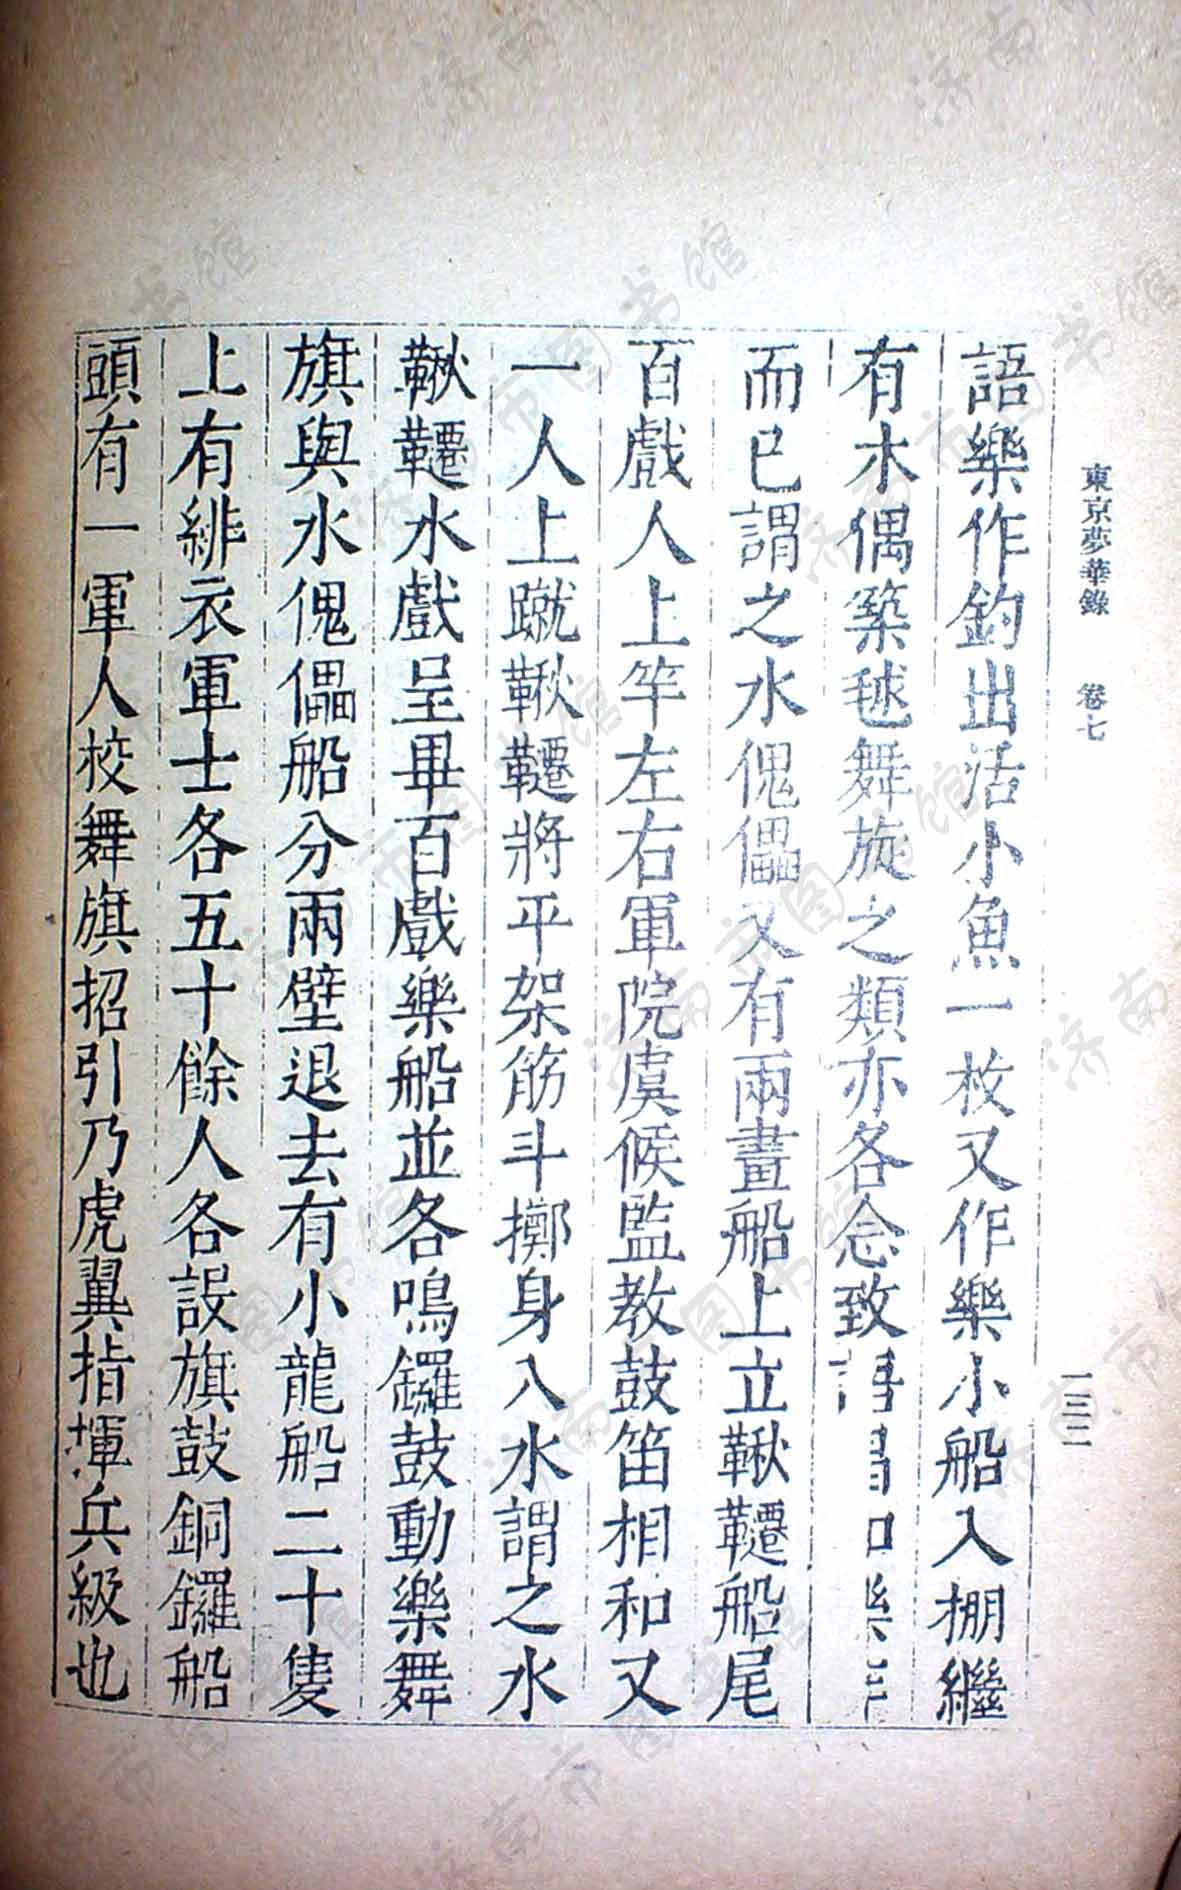 東京夢華錄 卷七 一三二
語樂作釣出活小魚一枚又作樂小船入棚繼
有木偶築毬舞旋之類亦各念致語唱和樂作
而已謂之水傀儡又有兩畫船上立鞦韆船尾
百戲人上竿左右軍院虞候監教鼓笛相和又
一人上蹴鞦韆將平架筋斗擲身入水謂之水
鞦韆水戲呈畢百戲樂船並各鳴鑼鼓動樂舞
旗與水傀儡船分兩壁退去有小龍船二十隻
上有緋衣軍士各五十餘人各設旗鼓銅鑼船
頭有一軍人校舞旗招引乃虎翼指揮兵級也
济南市图书馆